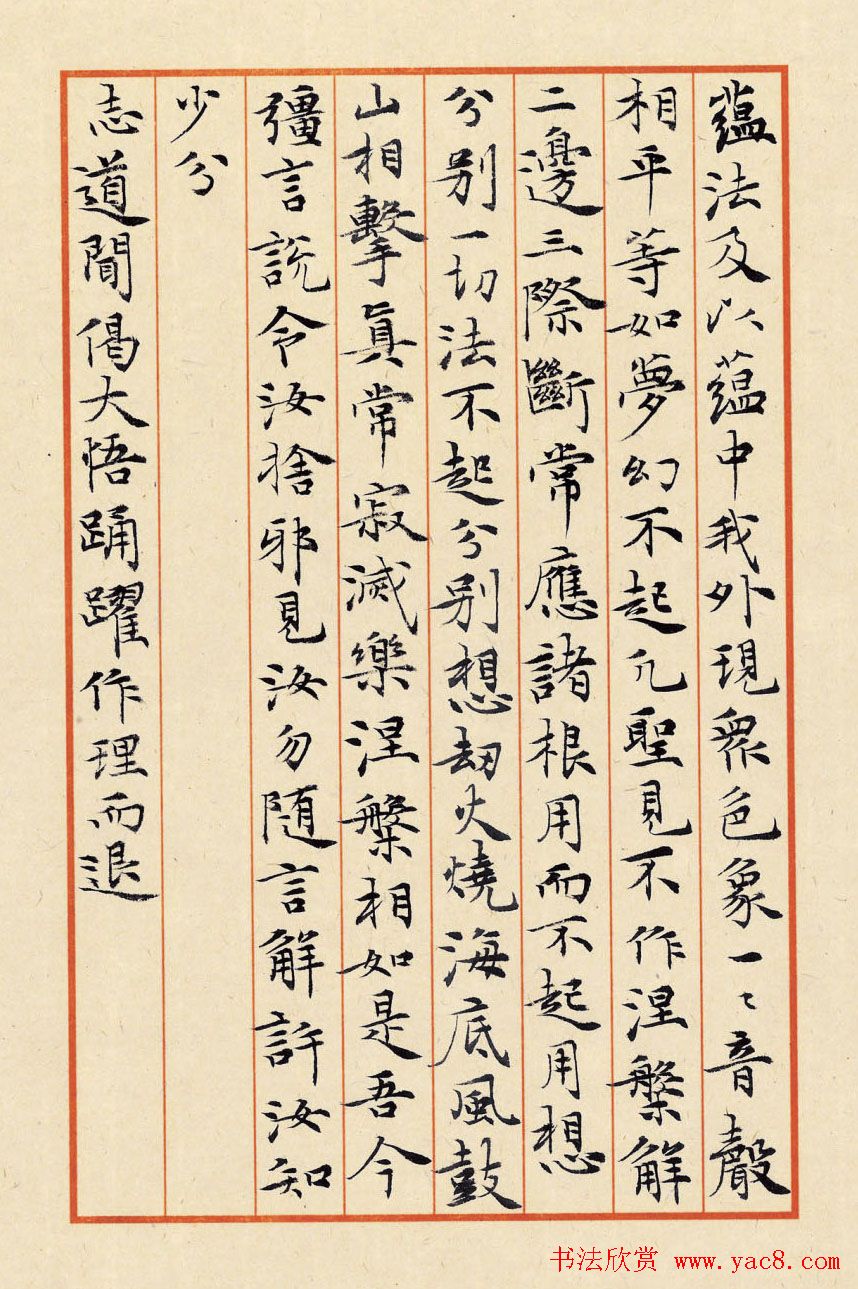 蘊法及以蘊中我外現眾色象一〻音聲
相平等如夢幻不起凡聖見不作涅槃解
二邊三際斷常應諸根用而不起用想
分別一切法不起分別想劫火燒海底風鼓
山相擊真常寂滅樂涅槃相如是吾今
彊言說令汝捨邪見汝勿隨言解許汝知
少分
志道聞偈大悟踊躍作理而退
书法欣赏 www.yac8.com